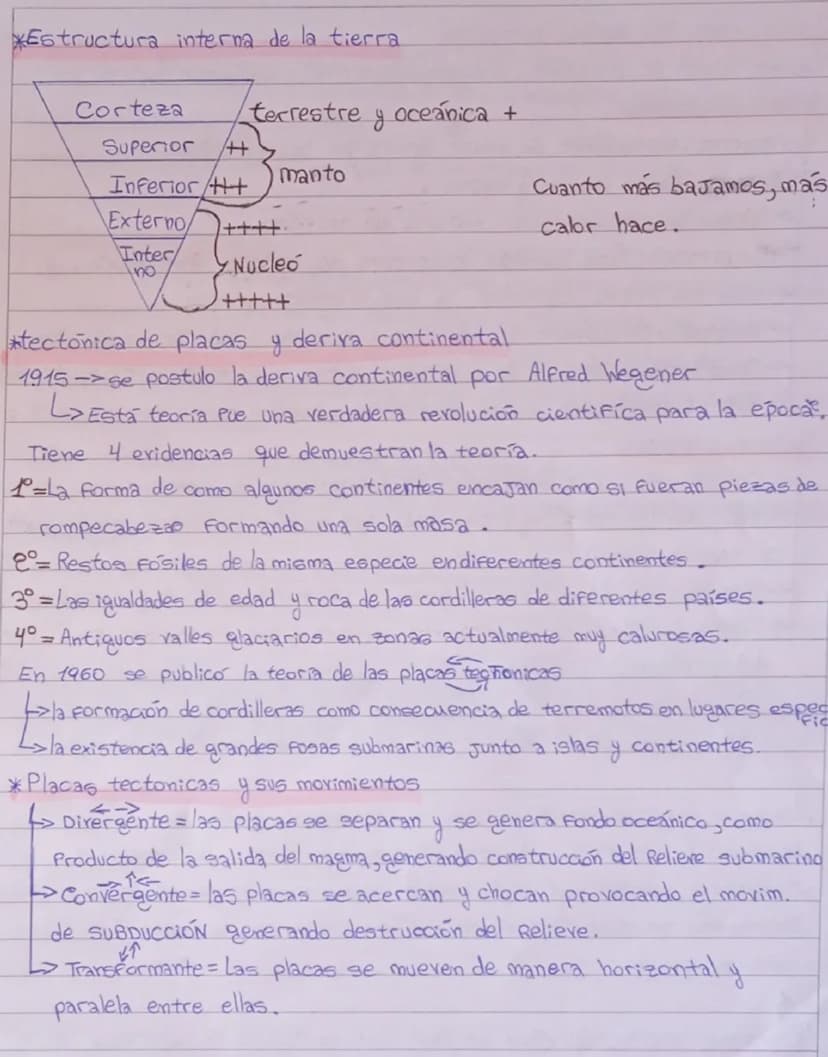 *Estructura interna de la tierra
Corteza terrestre y oceánica +
Superior ++
Inferior +++ manto
Cuanto más bajamos, más
calor hace.
Externo ++++
Inter
no
Nucleó
+++++
*tectónica de placas y deriva continental
1915 -> se postulo la deriva continental por Alfred Wegener
↳ Está teoría fue una verdadera revolución científica para la época.
Tiene 4 evidencias que demuestran la teoría.
1º=La forma de como algunos continentes encajan como si fueran piezas de
rompecabezas formando una sola masa.
2º= Restos fósiles de la misma especie en diferentes continentes.
3º=Las igualdades de edad y roca de las cordilleras de diferentes países.
4º= Antiguos valles glaciarios en zonas actualmente muy calurosas.
En 1960 se publicó la teoría de las placas tectonicas
↳ la formación de cordilleras como consecuencia de terremotos en lugares espec
ific
↳ la existencia de grandes fosas submarinas junto a islas y continentes.
* Placas tectonicas y sus movimientos
↳ Divergente = las placas se separan y se genera fondo oceánico, como
Producto de la salida del magma, generando construcción del Relieve submarino
↳ Convergente = las placas se acercan y chocan provocando el movim.
de SUBDUCCIÓN generando destrucción del Relieve.
↳ Transformante = Las placas se mueven de manera horizontal y
paralela entre ellas.